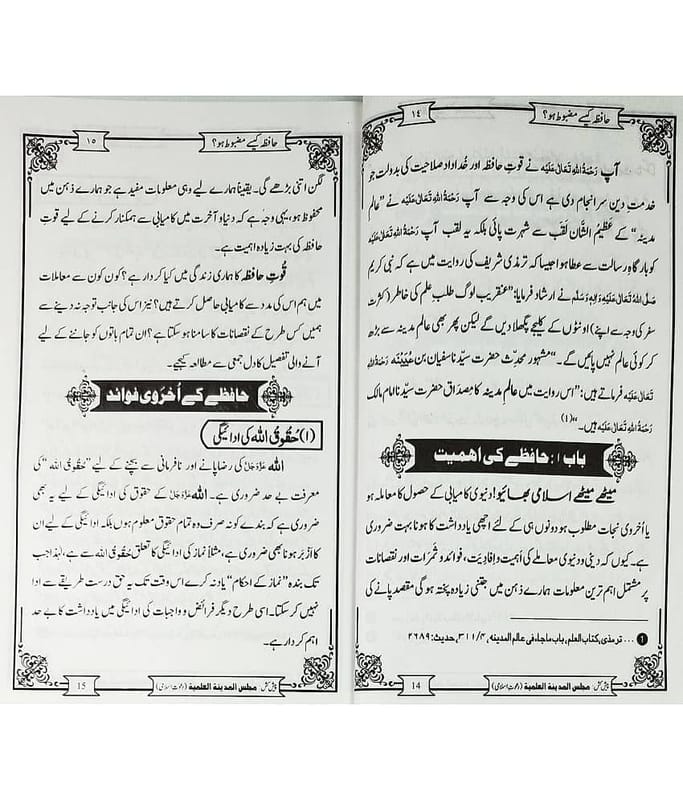 حافظہ کیسے مضبوط ہو؟
١٤
آپ رَحْمَۃُ اللہِ تَعَالٰی عَلَیْہ نے قوتِ حافظہ اور خُداداد صلاحیت کی بدولت جو
خدمتِ دین سر انجام دی ہے اس کی وجہ سے آپ رَحْمَۃُ اللہِ تَعَالٰی عَلَیْہ نے ”عالمِ
مدینہ“ کے عَظِیْمُ الشَّان لَقَب سے شہرت پائی بلکہ یہ لقب آپ رَحْمَۃُ اللہِ تَعَالٰی عَلَیْہ
کو بارگاہِ رِسالت سے عطا ہوا جیسا کہ ترمذی شریف کی روایت میں ہے کہ نبی کریم
صَلَّی اللہُ تَعَالٰی عَلَیْہِ وَاٰلِہٖ وَسَلَّم نے ارشاد فرمایا: ”عنقریب لوگ طلب علم کی خاطر (کثرتِ
سفر کی وجہ سے اپنے) اونٹوں کے کلیجے پگھلا دیں گے لیکن پھر بھی عالم مدینہ سے بڑھ
کر کوئی عالم نہیں پائیں گے۔“ مشہور محدِّث حضرت سیِّدنا سفیان بن عُیَیْنَہ رَحْمَۃُ اللہِ
تَعَالٰی عَلَیْہ فرماتے ہیں: ”اس روایت میں عالم مدینہ کا مِصداق حضرت سیِّدنا امام مالک
رَحْمَۃُ اللہِ تَعَالٰی عَلَیْہ ہیں۔“(١)
باب ١: حافظے کی اہمیت
میٹھے میٹھے اسلامی بھائیو! دنیوی کامیابی کے حصول کا معاملہ ہو
یا اُخروی نجات مطلوب ہو دونوں ہی کے لئے اچھی یادداشت کا ہونا بہت ضروری
ہے۔ کیوں کہ دینی و دنیوی معاملے کی اَہمیت و اِفادِیت، فوائد و ثمَرات اور نقصانات
پر مشتمل اہم ترین معلومات ہمارے ذہن میں جتنی زیادہ پختہ ہوگی مقصد پانے کی
1 ... ترمذی، کتاب العلم، باب ماجاء فی عالم المدینہ، ٣١١/۴، حدیث: ٢٦٨٩
14
پیش کش: مجلس المدینۃ العلمیۃ (دعوتِ اسلامی)
حافظہ کیسے مضبوط ہو؟
١٥
لگن اتنی بڑھے گی۔ یقیناً ہمارے لیے وہی معلومات مفید ہے جو ہمارے ذہن میں
محفوظ ہو، یہی وجہ ہے کہ دنیا و آخرت میں کامیابی سے ہمکنار کرنے کے لیے قوتِ
حافظہ کی بہت زیادہ اہمیت ہے۔
قُوتِ حافظہ کا ہماری زندگی میں کیا کردار ہے؟ کون کون سے معاملات
میں ہم اس کی مدد سے کامیابی حاصل کرتے ہیں؟ نیز اس کی جانب توجہ نہ دینے سے
ہمیں کس طرح کے نقصانات کا سامنا ہو سکتا ہے؟ ان تمام باتوں کو جاننے کے لیے
آنے والی تفصیل کا دل جمعی سے مطالعہ کیجیے۔
حافظے کے اُخرَوی فوائد
(١) حُقُوقُ اللہ کی ادائیگی
اللہ عَزَّوَجَلَّ کی رضا پانے اور نافرمانی سے بچنے کے لیے ”حقوقُ اللہ“ کی
معرفت بے حد ضروری ہے۔ اللہ عَزَّوَجَلَّ کے حقوق کی ادائیگی کے لیے یہ بھی
ضروری ہے کہ بندے کو نہ صرف وہ تمام حقوق معلوم ہوں بلکہ ادائیگی کے لیے ان
کا اَزْبَر ہونا بھی ضروری ہے، مثلاً نماز کی ادائیگی کا تعلق حُقُوقُ اللہ سے ہے، لہٰذا جب
تک بندہ ”نماز کے احکام“ یاد نہ کرے اس وقت تک یہ حق درست طریقے سے ادا
نہیں کر سکتا۔ اسی طرح دیگر فرائض و واجبات کی ادائیگی میں یادداشت کا بے حد
اہم کردار ہے۔
15
پیش کش: مجلس المدینۃ العلمیۃ (دعوتِ اسلامی)